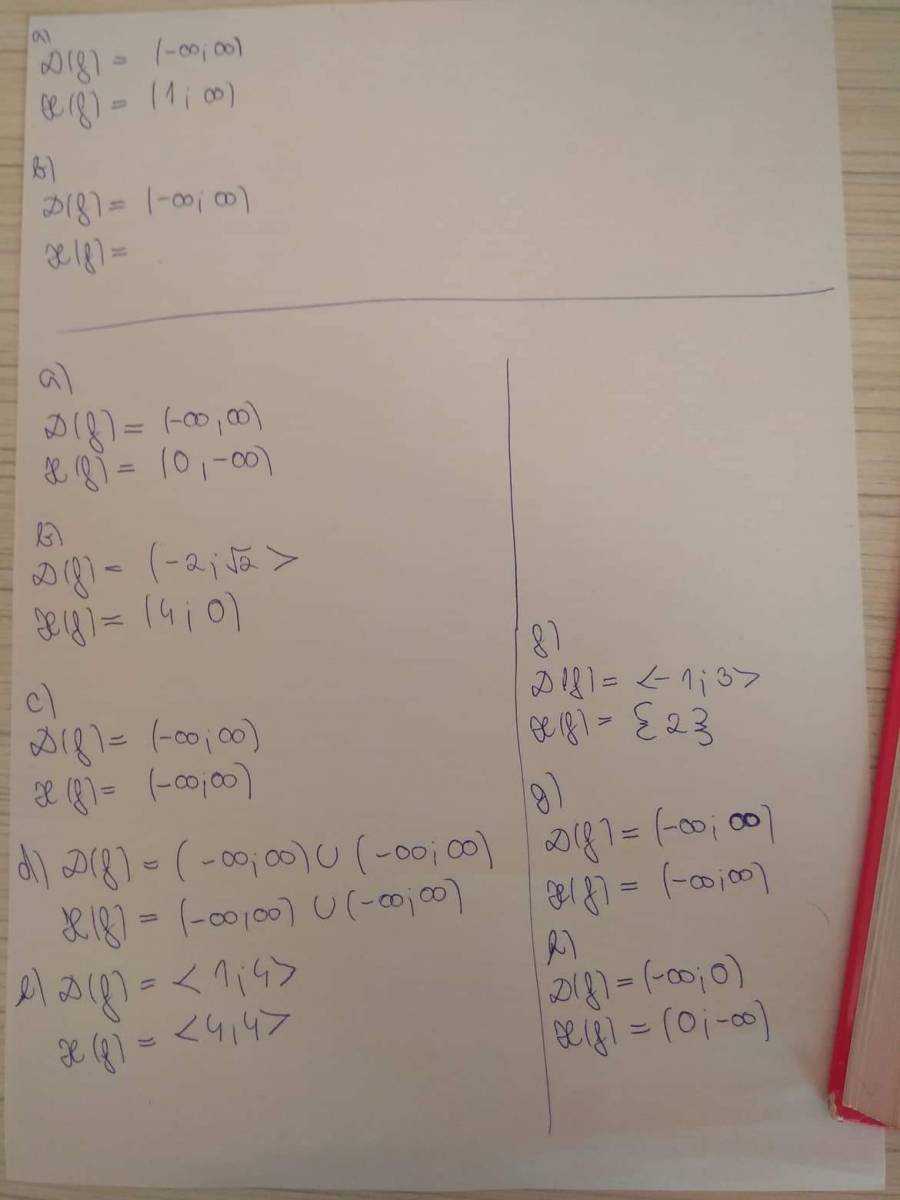 a)
D(f) = (-∞; ∞)
H(f) = (1; ∞)
b)
D(f) = (-∞; ∞)
H(f) =
a)
D(f) = (-∞, ∞)
H(f) = (0, -∞)
b)
D(f) = (-2; √2 >
H(f) = (4; 0)
c)
D(f) = (-∞; ∞)
H(f) = (-∞; ∞)
d) D(f) = (-∞; ∞) ∪ (-∞; ∞)
H(f) = (-∞; ∞) ∪ (-∞; ∞)
e) D(f) = <1; 4>
H(f) = <4; 4>
f)
D(f) = <-1; 3>
H(f) = {2}
g)
D(f) = (-∞; ∞)
H(f) = (-∞; ∞)
h)
D(f) = (-∞; 0)
H(f) = (0; -∞)